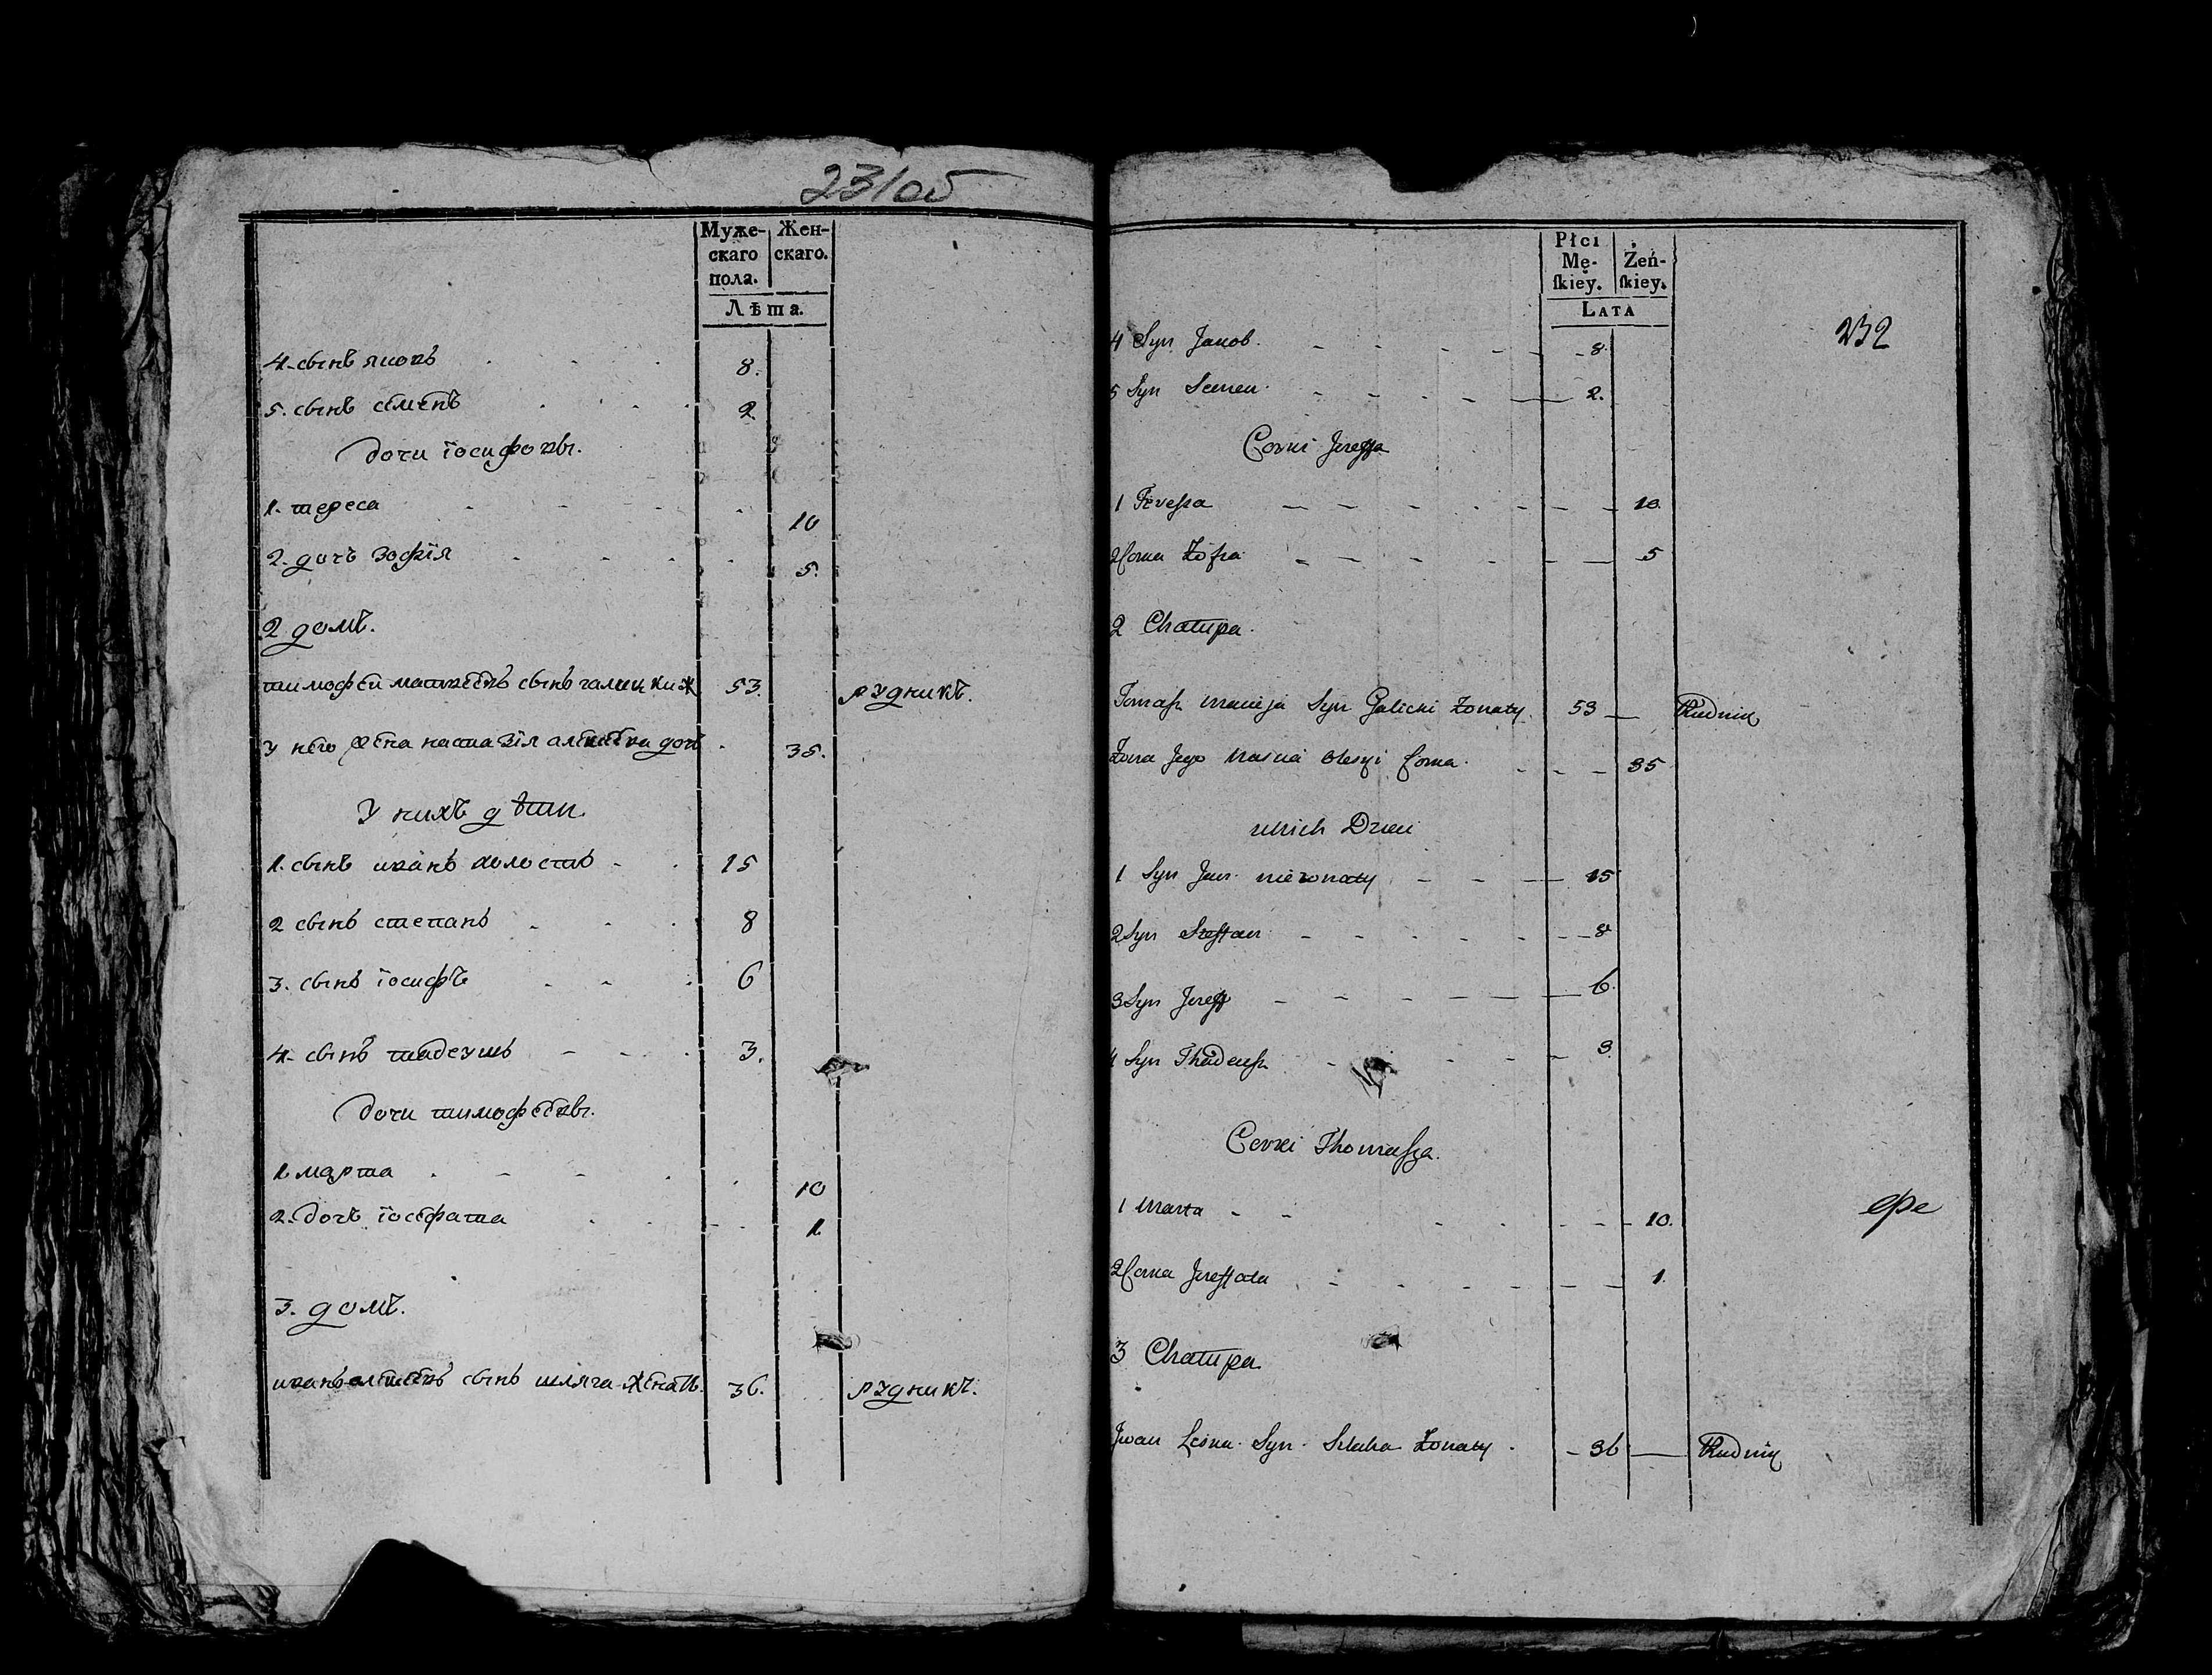 231об
Муже-
скаго
пола.
Жен-
скаго.
Лѣта.
4. сынъ яковъ 8.
5. сынъ семенъ 2.
дочи іосифовы.
1. тереса 10
2. дочь зофія 5.
2 домъ.
тимофей матвеевъ сынъ галицки ж 53. рудникъ.
у него жена настазія алексеева дочь 35.
у нихъ дѣти
1. сынъ иванъ холостъ 15
2 сынъ степанъ 8
3. сынъ іосифъ 6
4. сынъ тадеушъ 3.
дочи тимофеевы.
1. марта 10
2. дочь іосефата 1.
3. домъ.
иванъ сынъ шляга женатъ. 36. рудникъ.
Płci
Mę-
ſkiey.
Żeń-
ſkiey.
LATA
232
4 Syn Jakob 8.
5 Syn Semen 2.
Corki Jozeffa
1 Teressa 10.
2 Corka Zofia 5
2 Chałupa.
Tomasz Macieja Syn Galicki Zonaty 53 Rudnik
Zona Jego Corka 35
unich Dzieci
1 Syn Jan niezonaty 15
2 Syn Steffan 8
3 Syn Jozeff 6.
4 Syn Thadeusz 3
Corki Thomasza.
1 Marta 10.
2 Corka Jozeffata 1.
3 Chałupa
Jwan Syn Zonaty 36 Rudnik